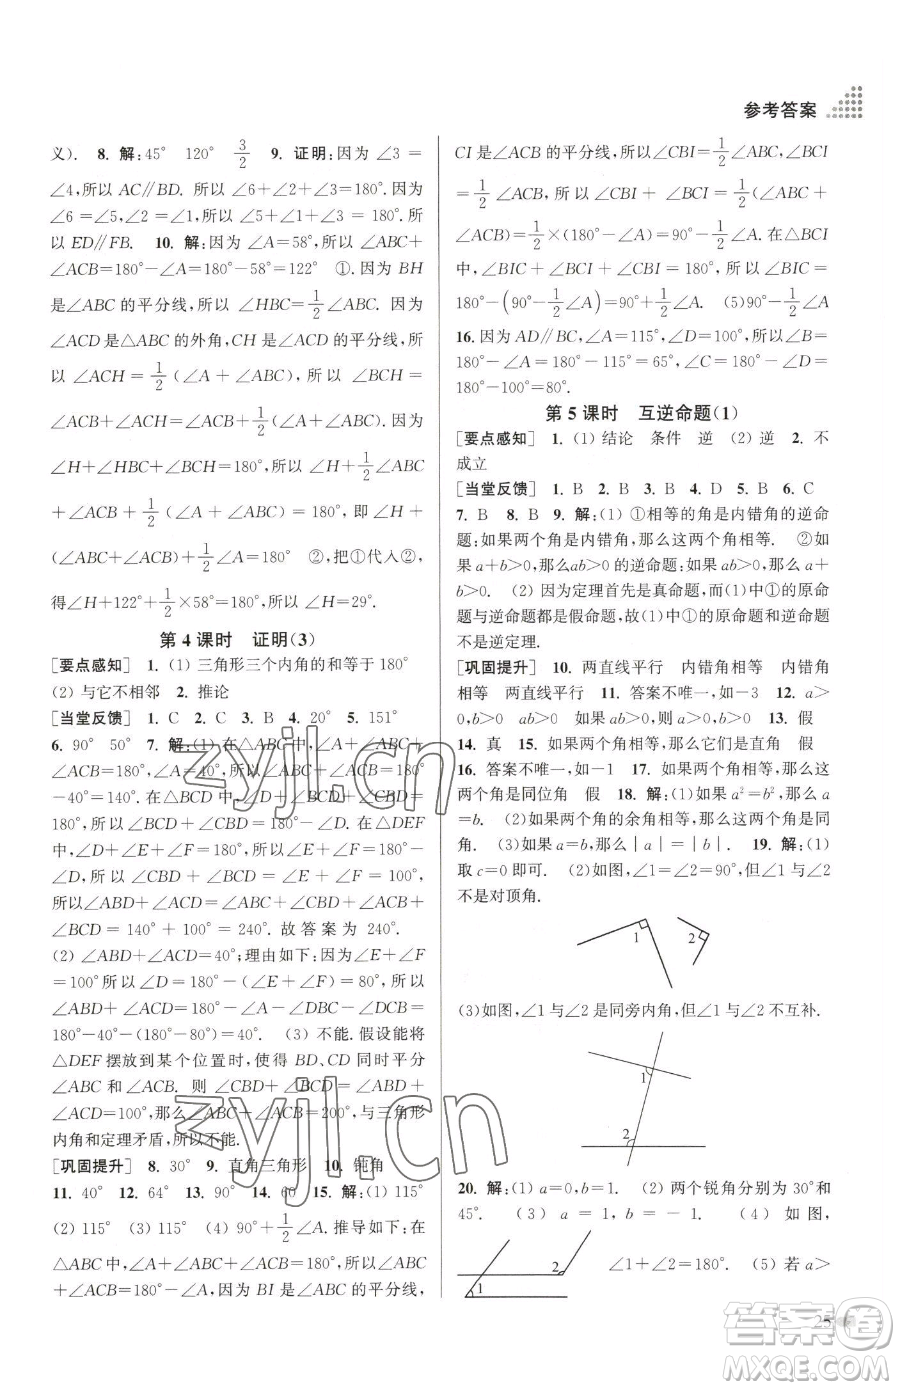 参考答案
义). 8. 解:45° 120° 3/2 9. 证明:因为∠3=
∠4,所以 AC∥BD. 所以∠6+∠2+∠3=180°. 因为
∠6=∠5,∠2=∠1,所以∠5+∠1+∠3=180°. 所
以 ED∥FB. 10. 解:因为∠A=58°,所以∠ABC+
∠ACB=180°-∠A=180°-58°=122° ①. 因为 BH
是∠ABC 的平分线,所以∠HBC=1/2∠ABC. 因为
∠ACD 是△ABC 的外角,CH 是∠ACD 的平分线,所
以∠ACH=1/2(∠A+∠ABC),所以∠BCH=
∠ACB+∠ACH=∠ACB+1/2(∠A+∠ABC). 因为
∠H+∠HBC+∠BCH=180°,所以∠H+1/2∠ABC
+∠ACB+1/2(∠A+∠ABC)=180°,即∠H+
(∠ABC+∠ACB)+1/2∠A=180° ②,把①代入②,
得∠H+122°+1/2×58°=180°,所以∠H=29°.
第 4 课时 证明(3)
[要点感知] 1. (1) 三角形三个内角的和等于 180°
(2) 与它不相邻 2. 推论
[当堂反馈] 1. C 2. C 3. C 4. 20° 5. 151°
6. 90° 50° 7. 解:(1) 在△ABC 中,∠A+∠ABC+
∠ACB=180°,∠A=40°,所以∠ABC+∠ACB=180°
-40°=140°. 在△BCD 中,∠D+∠BCD+∠CBD=
180°,所以∠BCD+∠CBD=180°-∠D. 在△DEF
中,∠D+∠E+∠F=180°,所以∠E+∠F=180°-
∠D,所以∠CBD+∠BCD=∠E+∠F=100°,
所以∠ABD+∠ACD=∠ABC+∠CBD+∠ACB+
∠BCD=140°+100°=240°. 故答案为 240°.
(2) ∠ABD+∠ACD=40°;理由如下:因为∠E+∠F
=100°所以∠D=180°-(∠E+∠F)=80°,所以
∠ABD+∠ACD=180°-∠A-∠DBC-∠DCB=
180°-40°-(180°-80°)=40°. (3) 不能. 假设能将
△DEF 摆放到某个位置时,使得 BD、CD 同时平分
∠ABC 和∠ACB. 则∠CBD+∠BCD=∠ABD+
∠ACD=100°,那么∠ABC+∠ACB=200°,与三角形
内角和定理矛盾,所以不能.
[巩固提升] 8. 30° 9. 直角三角形 10. 钝角
11. 40° 12. 64° 13. 90° 14. 60 15. 解:(1) 115°
(2) 115° (3) 115° (4) 90°+1/2∠A. 推导如下:在
△ABC 中,因为∠A+∠ABC+∠ACB=180°,所以∠ABC
+∠ACB=180°-∠A. 因为 BI 是∠ABC 的平分线,
CI 是∠ACB 的平分线,所以∠CBI=1/2∠ABC,∠BCI
=1/2∠ACB,所以∠CBI+∠BCI=1/2(∠ABC+
∠ACB)=1/2×(180°-∠A)=90°-1/2∠A. 在△BCI
中,∠BIC+∠CBI+∠BCI=180°,所以∠BIC=
180°-(90°-1/2∠A)=90°+1/2∠A. (5)90°-1/2∠A
16. 因为 AD∥BC,∠A=115°,∠D=100°,所以∠B=
180°-∠A=180°-115°=65°,∠C=180°-∠D=
180°-100°=80°.
第 5 课时 互逆命题(1)
[要点感知] 1. (1) 结论 条件 逆 (2) 逆 2. 不
成立
[当堂反馈] 1. B 2. B 3. B 4. D 5. B 6. C
7. B 8. B 9. 解:(1) ①相等的角是内错角的逆命
题:如果两个角是内错角,那么这两个角相等. ②如
果 a+b>0,那么 ab>0 的逆命题:如果 ab>0,那么 a+
b>0. (2) 因为定理首先是真命题,(1)中①的原命
题与逆命题都是假命题,故(1)中①的原命题和逆命题
不是逆定理.
[巩固提升] 10. 两直线平行 内错角相等 内错角
相等 两直线平行 11. 答案不唯一,如-3 12. a>
0,b>0 如果 a>0,b>0,那么 ab>0 13. 假
14. 真 15. 如果两个角相等,那么它们是直角 假
16. 答案不唯一,如-1 17. 如果两个角相等,那么这
两个角是同位角 假 18. 解:(1)如果 a²=b²,那么 a
=b. (2)如果两个角的余角相等,那么这两个角是同
角. (3)如果 a=b,那么|a|=|b|. 19. 解:(1)
取 c=0 即可. (2)如图,∠1=∠2=90°,但∠1 与∠2
不是对顶角.
1 2
(3)如图,∠1 与∠2 是同旁内角,但∠1 与∠2 不互补.
1
2
20. 解:(1) a=0,b=1. (2) 两个锐角分别为 30°和
45°. (3) a=1,b=-1. (4) 如图,
1 2 ∠1+∠2=180°. (5) 若 a>
25
zyjl.cn
zyjl.cn
答案圈
MXQE.COM